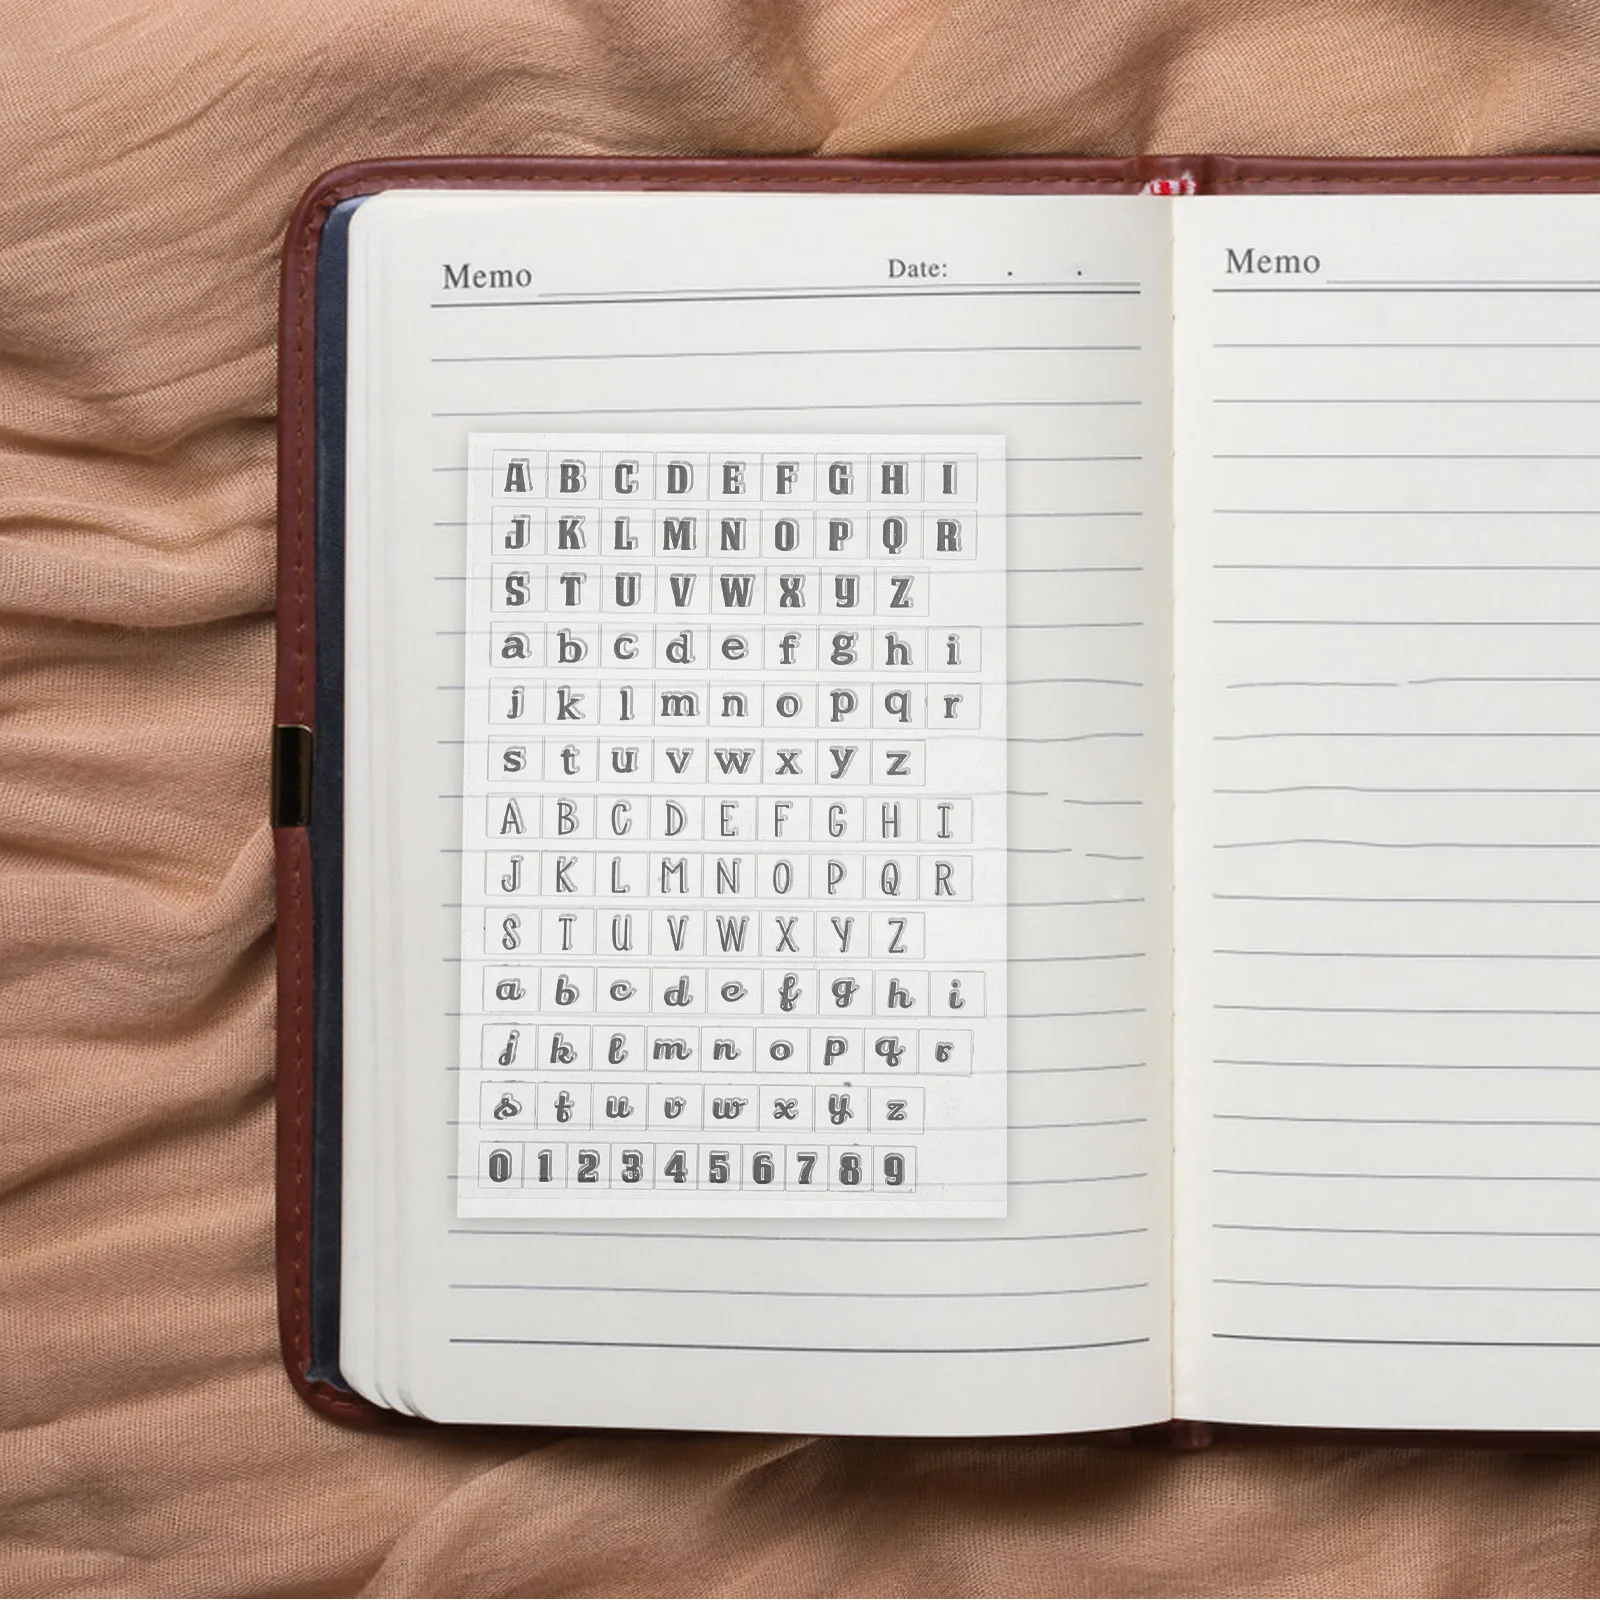 Memo Date: . .
Memo
A B C D E F G H I
J K L M N O P Q R
S T U V W X y Z
a b c d e f g h i
j k l m n o p q r
s t u v w x y z
A B C D E F G H I
J K L M N O P Q R
S T U V W X Y Z
a b c d e f g h i
j k l m n o p q r
s t u v w x y z
0 1 2 3 4 5 6 7 8 9